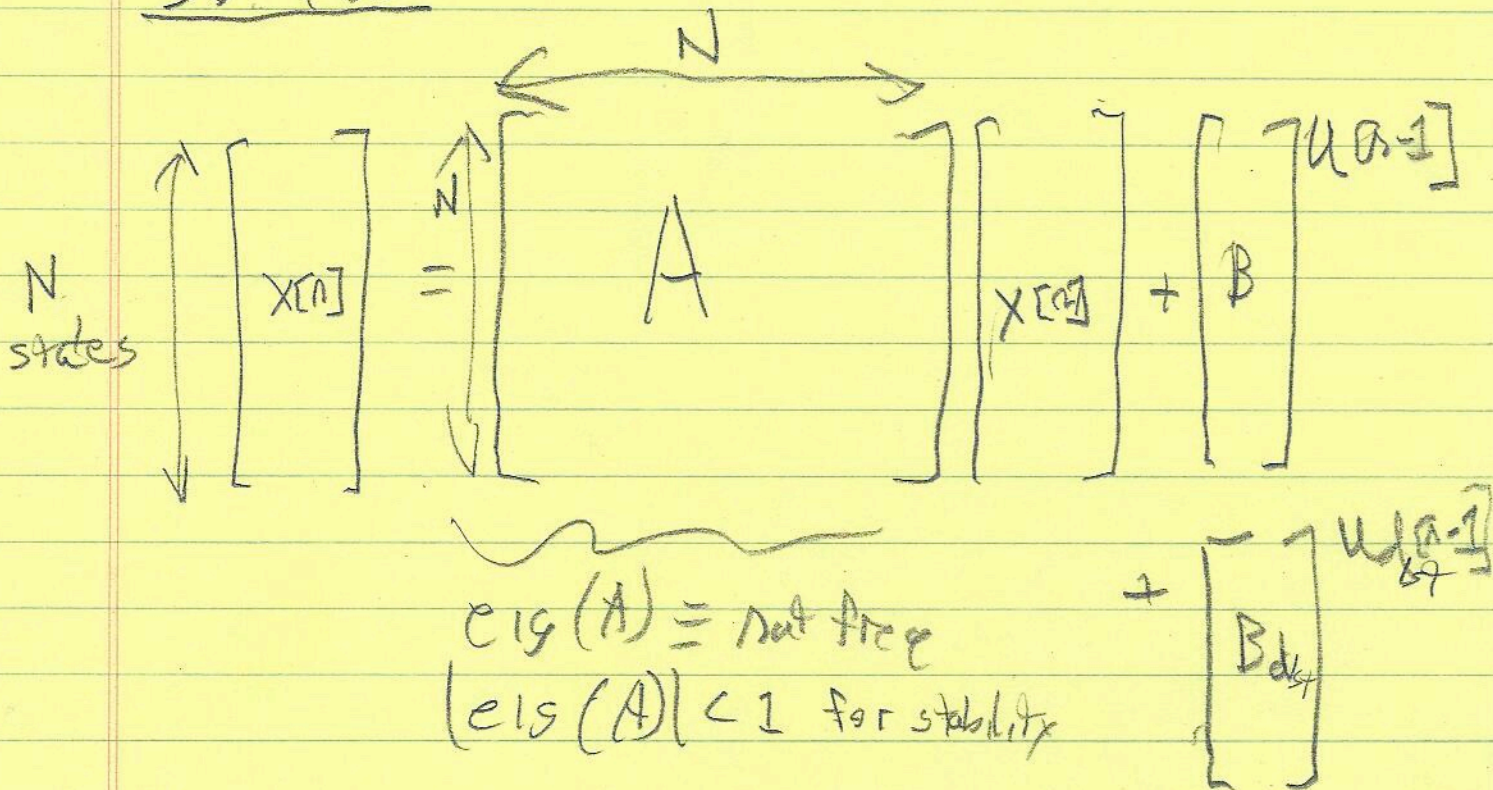 N
N states [X[n]] = N [A] [X[n-1]] + [B] u[n-1]
+ [Bdist] udist[n-1]
eig(A) ≡ nat freq
|eig(A)| < 1 for stability